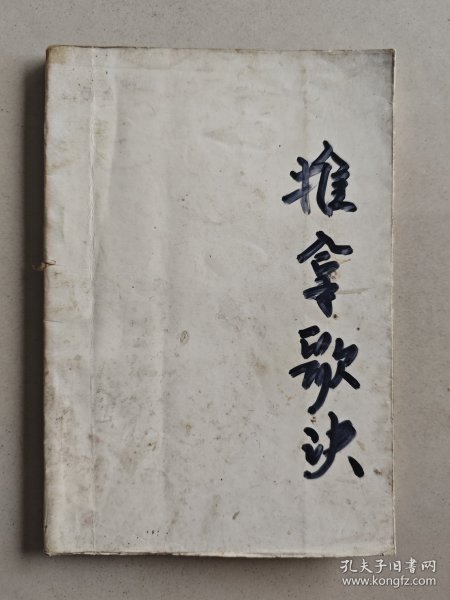 推拿歌诀
孔夫子旧书网
www.kongfz.com